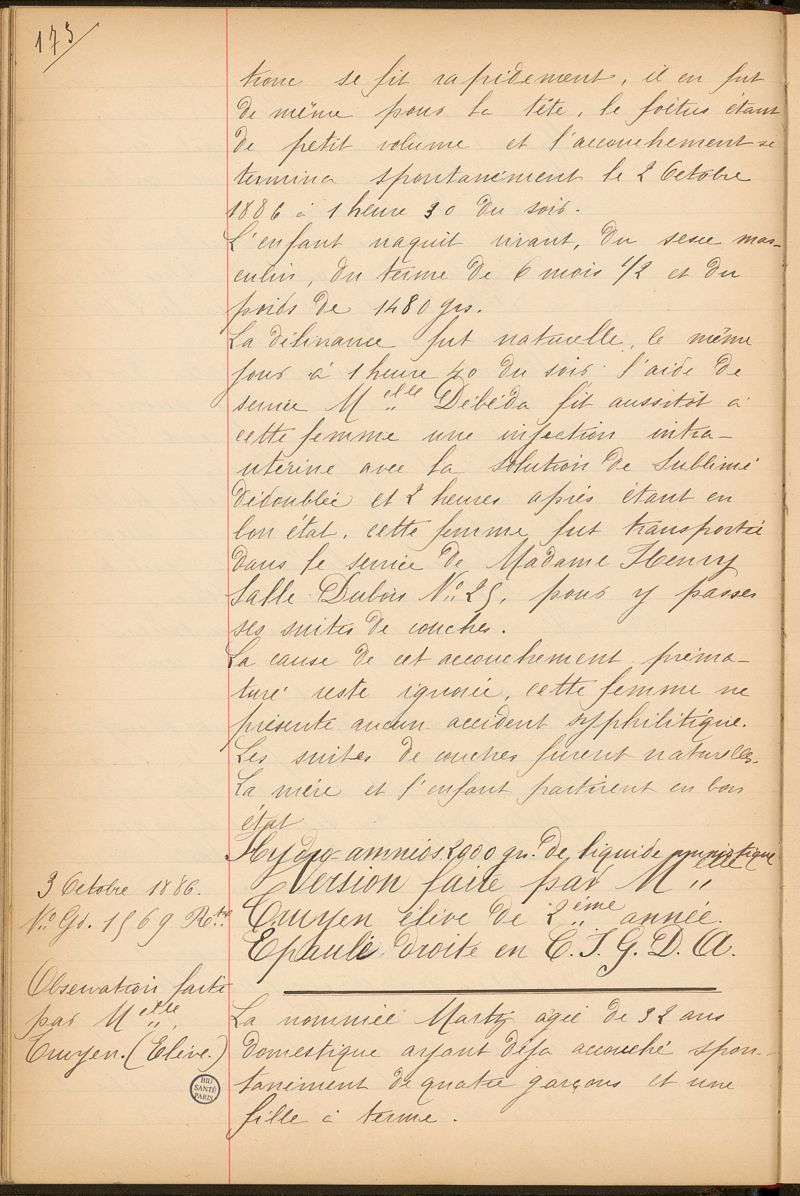 175
tronc se fit rapidement, il en fut
de même pour la tête, le foetus étant
de petit volume et l'accouchement se
termina spontanément le 2 Octobre
1886 à 1 heure 30 du soir.
L'enfant naquit vivant, du sexe mas-
culin, du terme de 6 mois 1/2 et du
poids de 1480 grs.
La délivrance fut naturelle, le même
jour à 1 heure 40 du soir l'aide de
service Melle Débéda fit aussitôt à
cette femme une injection intra-
utérine avec la solution de sublimé
dédoublée et 2 heures après étant en
bon état, cette femme fut transportée
dans le service de Madame Henry
Salle Dubois No 25, pour y passer
ses suites de couches.
La cause de cet accouchement préma-
turé reste ignorée, cette femme ne
présente aucun accident syphilitique.
Les suites de couches furent naturelles.
La mère et l'enfant partirent en bon
état
Hydro-amnios 2900 grs. de liquide amniotique
3 Octobre 1886.
No Gd. 1569 Rtre
Version faite par Melle
Cruyen élève de 2ème année.
Epaule droite en C.I.G.D.A.
Observation faite
par Melle
Cruyen. (Elève.)
La nommée Marty agée de 32 ans
domestique ayant déja accouché spon-
tanément de quatre garçons et une
fille à terme.
BIU
SANTÉ
PARIS